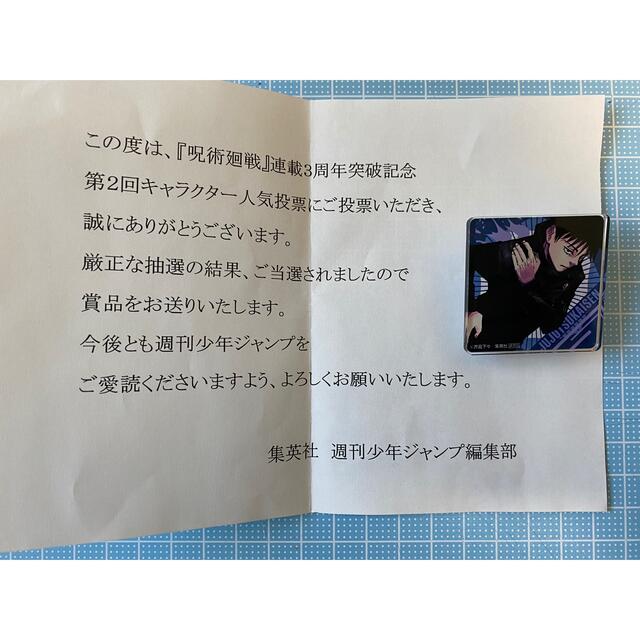 この度は、『呪術廻戦』連載3周年突破記念
第2回キャラクター人気投票にご投票いただき、
誠にありがとうございます。
厳正な抽選の結果、ご当選されましたので
賞品をお送りいたします。
今後とも週刊少年ジャンプを
ご愛読くださいますよう、よろしくお願いいたします。
集英社 週刊少年ジャンプ編集部
JUJUTSU KAISEN
©芥見下々/集英社